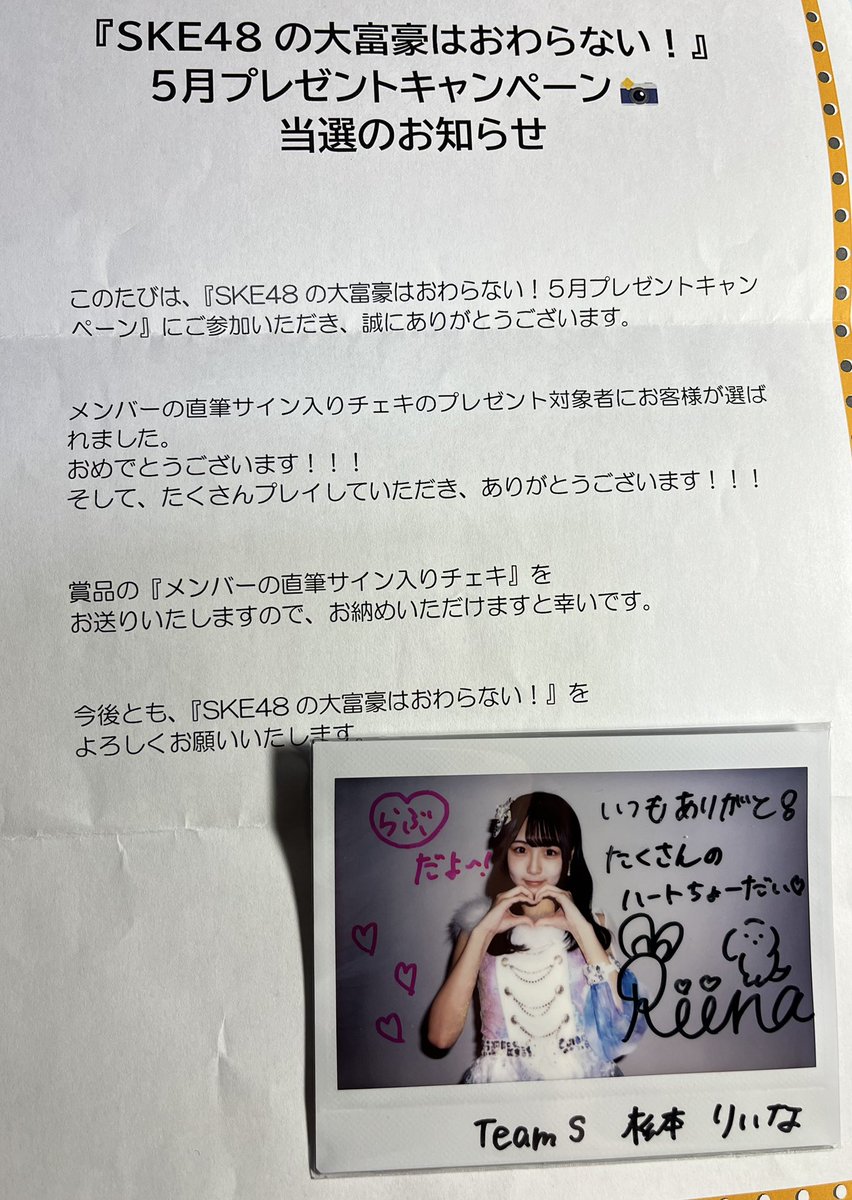 『SKE48の大富豪はおわらない！』
5月プレゼントキャンペーン
当選のお知らせ
このたびは、『SKE48の大富豪はおわらない！5月プレゼントキャン
ペーン』にご参加いただき、誠にありがとうございます。
メンバーの直筆サイン入りチェキのプレゼント対象者にお客様が選ば
れました。
おめでとうございます！！！
そして、たくさんプレイしていただき、ありがとうございます！！！
賞品の『メンバーの直筆サイン入りチェキ』を
お送りいたしますので、お納めいただけますと幸いです。
今後とも、『SKE48の大富豪はおわらない！』を
よろしくお願いいたします。
らぶ
だよ〜!
いつもありがと8
たくさんの
ハートちょーだい♡
Riina
Team S 杉本 りいな